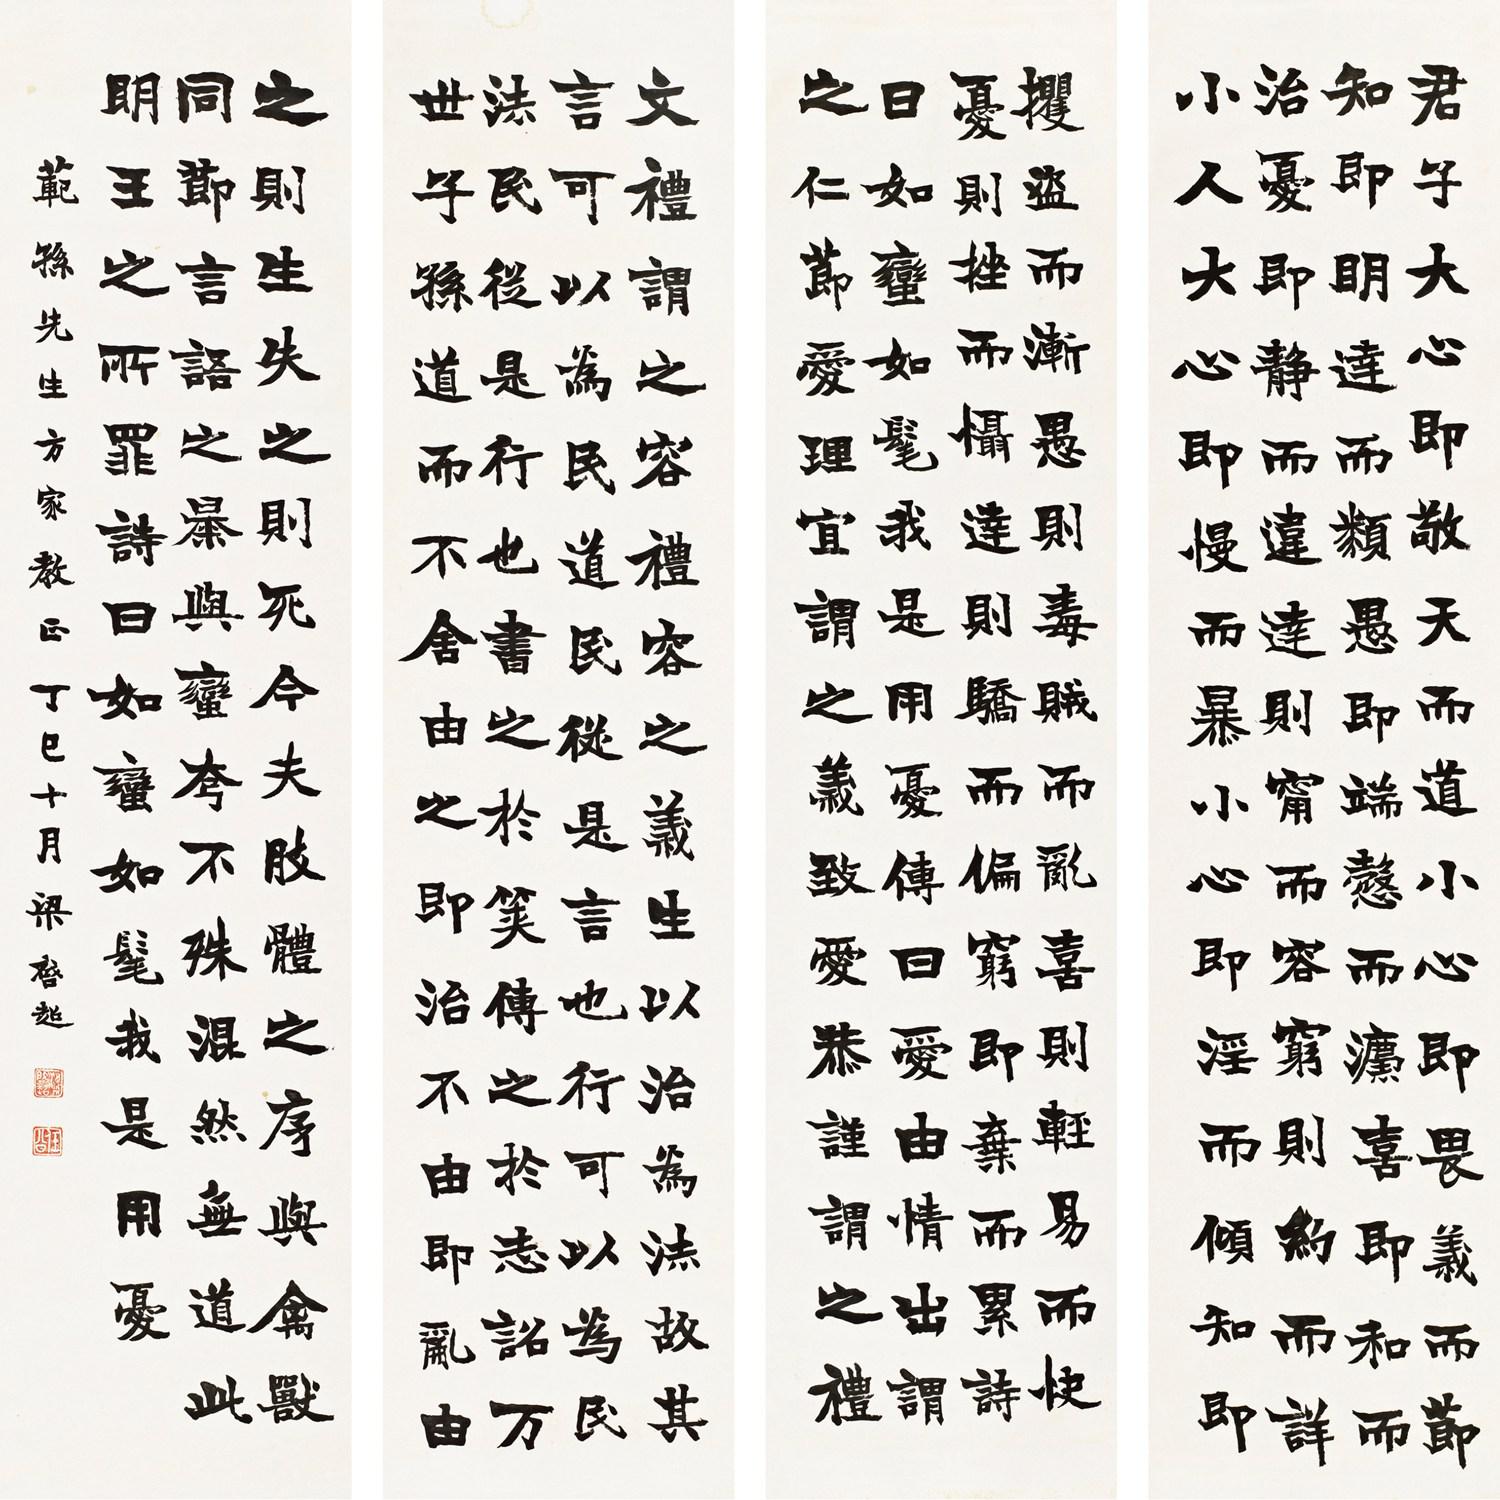 君子大心即敬天而道小心即畏義而節
知即明達而類愚即端愨而瀌喜即和而
治憂即靜而違達則甯而容窮則約而詳
小人大心即慢而暴小心即淫而傾知即
攫盜而漸愚則毒賊而亂喜則輕易而快
憂則挫而懾達則驕而偏窮即棄而累詩
曰如蠻如髦我是用憂傳曰愛由情出謂
之仁節愛理宜謂之義致愛恭謹謂之禮
文禮謂之容禮容之義生以治為法故其
言可以為民道民從是言也行可以為民
法民從是行也書之於筴傳之於志詔万
世子孫道而不舍由之即治不由即亂由
之則生失之則死今夫肢體之序與禽獸
同節言語之暴與蠻夸不殊混然無道此
明王之所罪詩曰如蠻如髦我是用憂
範孫先生方家教正 丁巳十月梁啓超